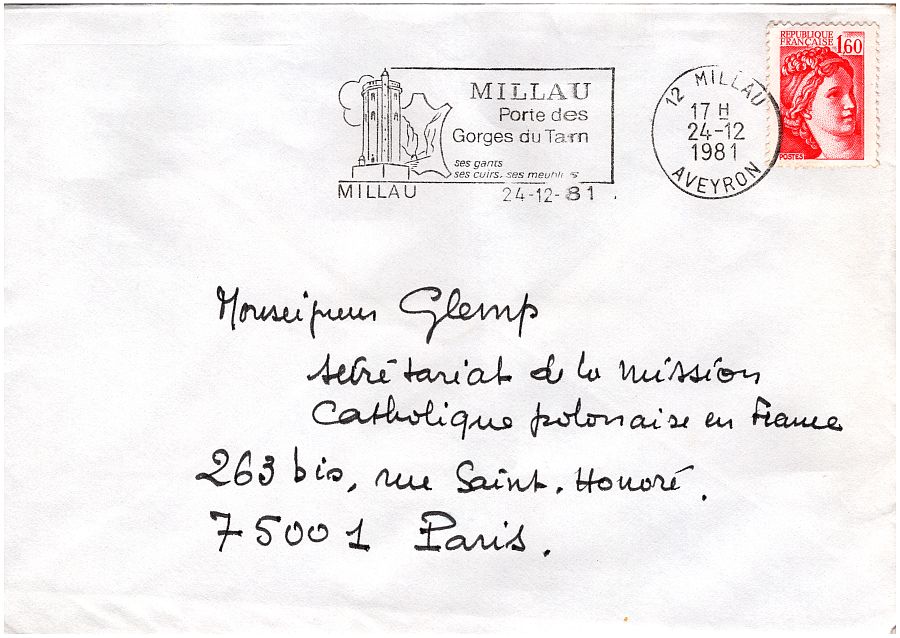 MILLAU
Porte des
Gorges du Tarn
ses gants
ses cuirs, ses meubles
MILLAU 24-12-81
12 MILLAU
17 H
24-12
1981
AVEYRON
REPUBLIQUE
FRANÇAISE 1,60
POSTES
Monseigneur Glemp
secrétariat de la mission
Catholique polonaise en France
263 bis, rue Saint-Honoré.
75001 Paris.